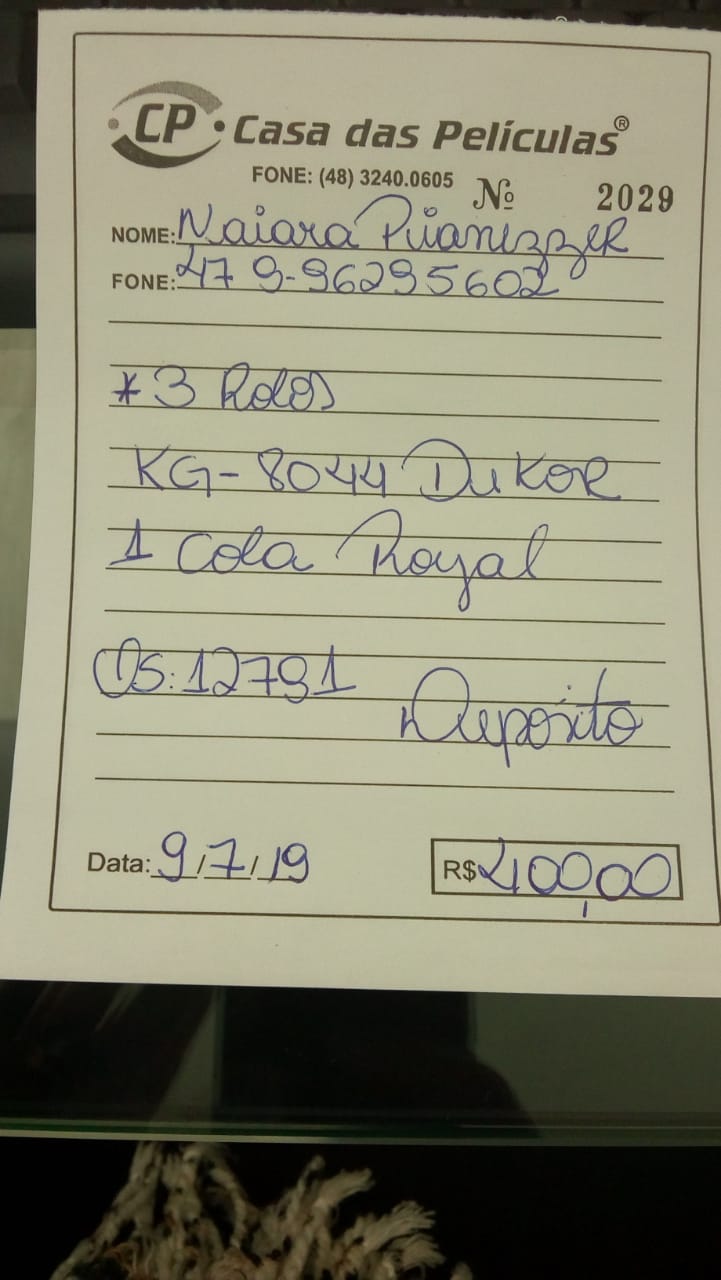 CP Casa das Películas®
FONE: (48) 3240.0605 Nº 2029
NOME: Naiara
FONE: 47 9-96295602
* 3 Rolos
KG-8044 Dukor
1 Cola Royal
OS: 12791
Deposito
Data: 9/7/19 R$ 400,00